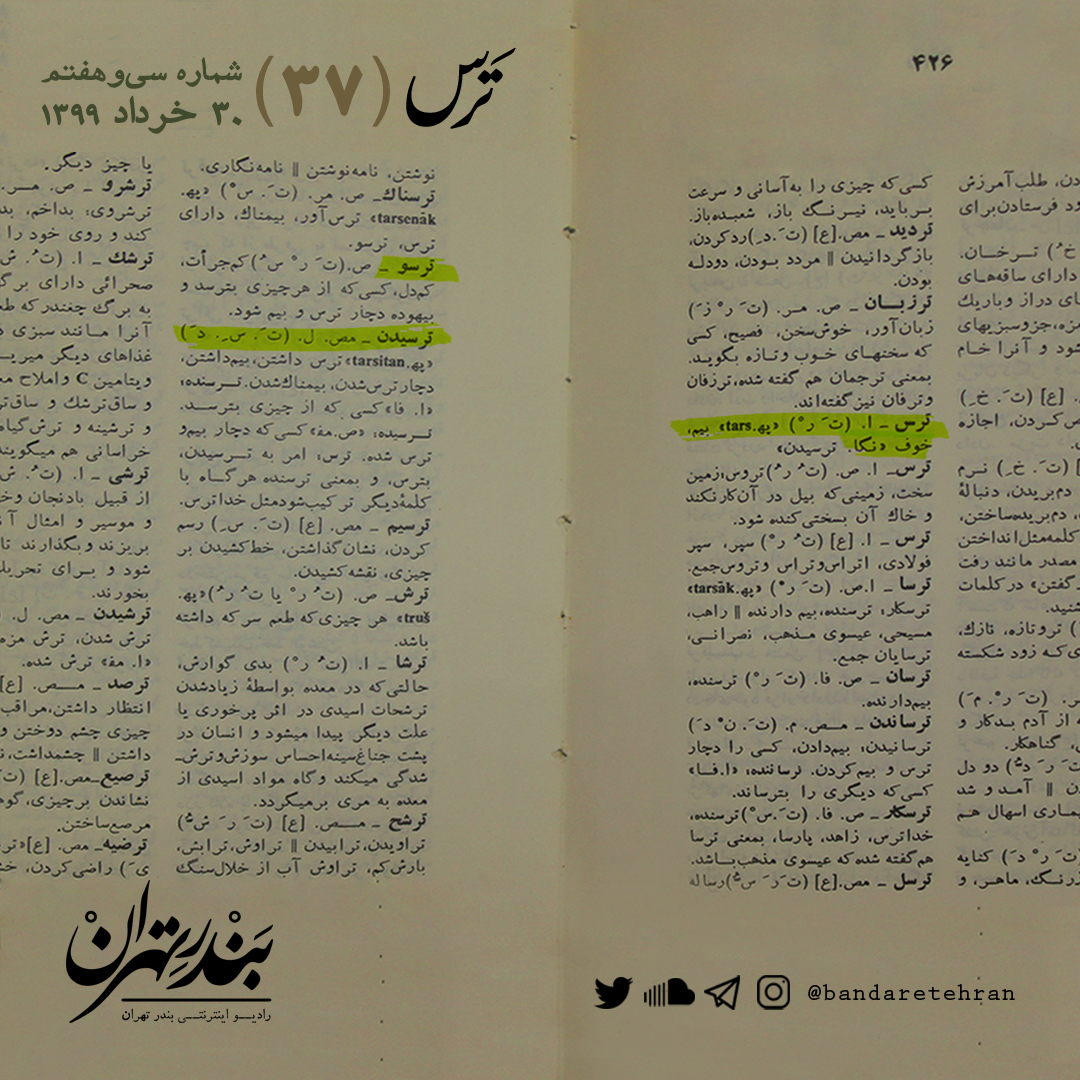 ترس
(۳۷)
شماره سی‌و‌هفتم
۳۰ خرداد ۱۳۹۹
۴۲۶
کسی‌که چیزی را به‌آسانی و سرعت
بـربایـد، نیـرنـگ باز، شعبده‌باز.
تردید ــ مص.[ع] (تَ.دِ)ردکردن،
بازگردانیدن ‖ مردد بـودن، دودلـه
بودن.
ترزبـــان ــ ص. مـر. (تَ رْ زَ)
زبان‌آور، خوش‌سخن، فصیح، کسی
که سخنهای خـوب و تازه بگویـد.
بمعنی ترجمان هم گفته شده،ترزفان
و ترفان نیزگفته‌اند.
ترس ــ ا. (تَ رْ) «پهـ.tars» بیم،
خوف «نگا. ترسیدن»
ترس ــ ا. ص. (تُ رُ)تروس،زمین
سخت، زمینی‌که بیل در آن‌کارنکند
و خاك آن بسختی‌کنده شود.
ترس ــ ا. [ع] (تُ رْ) سپر، سپر
فولادی، اتراس‌وتراس و تروس‌جمع.
ترسا ــ ا.ص. (تَ رْ) «پهـ.tarsāk»
ترسکار، ترسنده،بیم دارنده ‖ راهب،
مسیحی، عیسوی مـذهب، نصرانـی،
ترسایان جمع.
ترسان ــ ص. فا. (تَ رْ) ترسنده،
بیم‌دارنده.
ترساندن ــ مــص. م. (تَ. نْ دَ)
ترسانیدن، بیم‌دادن، کسی را دچار
ترس و بیم‌کردن. ترساننده: «ا.فـا»
کسی‌که دیگری را بترساند.
ترسکار ــ ص. فا. (تَ.سْ)ترسنده،
خداترس، زاهد، پارسا، بمعنی ترسا
هم‌گفته شده‌که عیسوی مذهب‌بـاشد.
ترسل ــ مص.[ع] (تَ رَ سُّ)رساله
نوشتن، نامه‌نوشتن ‖ نامه‌نگاری.
ترسناك ــ ص. مر. (تَ. سْ) «پهـ.
tarsenāk» ترس‌آور، بیمناك، دارای
ترس، ترسو.
ترسو ــ ص.(تَ رْ سُ)کم‌جرأت،
کم‌دل،کسی‌که از هرچیزی بترسد و
بیهوده دچار ترس و بیم شود.
ترسیدن ــ مص. ل. (تَ. سِ. دَ)
«پهـ.tarsitan» ترس داشتن،بیم‌داشتن،
دچارترس‌شدن،بیمناك‌شدن.تـرسنده:
«ا. فا» کسی که از چیزی بترسـد.
تـرسیده: «ص.مفـ» کسی‌که دچار بیم‌و
ترس شده. ترس: امر به تـرسیـدن،
بترس، و بمعنی ترسنده هرگـاه بـا
کلمهٔ‌دیگر ترکیب‌شودمثل خداترس.
ترسیم ــ مص. [ع] (تَ. سِ) رسم
کردن، نشان‌گذاشتن، خط‌کشیدن بر
چیزی، نقشه‌کشیدن.
ترش ــ ص. (تُ رْ یا تُ رُ) «پهـ.
truš» هر چیزی‌که طعم سرکه داشته
باشد.
ترشا ــ ا. (تُ رْ) بدی گوارش،
حالتی‌که در معده بواسطهٔ زیادشدن
ترشحات اسیدی در اثر پرخوری یا
علت دیگر پیدا میشود و انسان در
پشت جناغ‌سینه‌احساس سوزش‌وترش‌ـ
شدگی میکند وگاه مواد اسیدی از
معده به مری برمیگردد.
ترشح ــ مــص. [ع] (تَ رَ شُّ)
تراویدن،ترابیدن ‖ تراوش،ترابش،
بارش‌کم، تراوش آب از خلال‌سنگ
یا چیز دیگر.
ترشرو ــ ص. مـر.
ترشروی: بداخم،
کند و روی خود را
ترشك ــ ا. (تُ.
صحرائی دارای
به برگ چغندر که
آنرا مـانند سبزی
غذاهای دیگر
ویتامین C و املاح
و ساق‌ترشك و
و ترشینه و ترش‌گیاه
خراسانی هم میگویند
ترشی ــ ا. (تُ.
از قبیل بادنجان
و موسیر و امثال
بریزند وبگذارند تا
شود و بـرای
بخورند.
ترشیدن ــ مص. ل.
ترش شدن، ترش مزه
«ا. مفـ» ترش شده.
ترصد ــ مــص. [ع]
انتظار داشتن،مراقب
چیزی چشم دوختن و
داشتن ‖ چشمداشت،
ترصیع ــ مص.[ع]
نشاندن برچیزی،
مرصع‌ساختن.
ترضیه ــ مص. [ع]
راضی‌کردن،
طلب آمرزش
فرستادن‌برای
تـرخـان.
دارای ساقه‌های
دراز و باریك
جزوسبزیهای
شود و آنرا خام
[ع] (تَ. خِ)
اجازه
(تَ. خِ) نـرم
دم‌بریدن، دنبالهٔ
دم‌بریده‌ساختن،
کلمه‌مثل‌انداختن
مصدر مانند رفت
گفتن» درکلمات
تروتازه، نازك،
که زود شکسته
(تَ رْ. مَ)
از آدم بدکار و
گناهکار.
دو دل
‖ آمـد و شد
بیماری اسهال هـم
(تَ رْ دَ) کنایه
ماهـر، و
بَندرِ تهران
رادیــو اینترنتــی بندر تهران
@bandaretehran